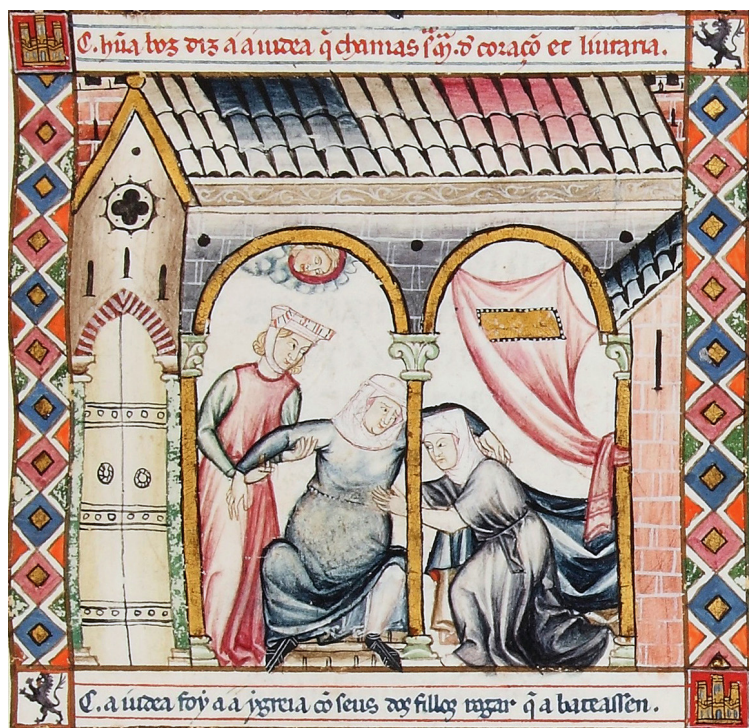 C. hũa uoz diz a a iudea q̃ chamas s̃. M̃. d' coraçõ et liuraria.
C. a iudea foy a a ygreia cõ seus dos fillos rogar q̃ a bateassen.